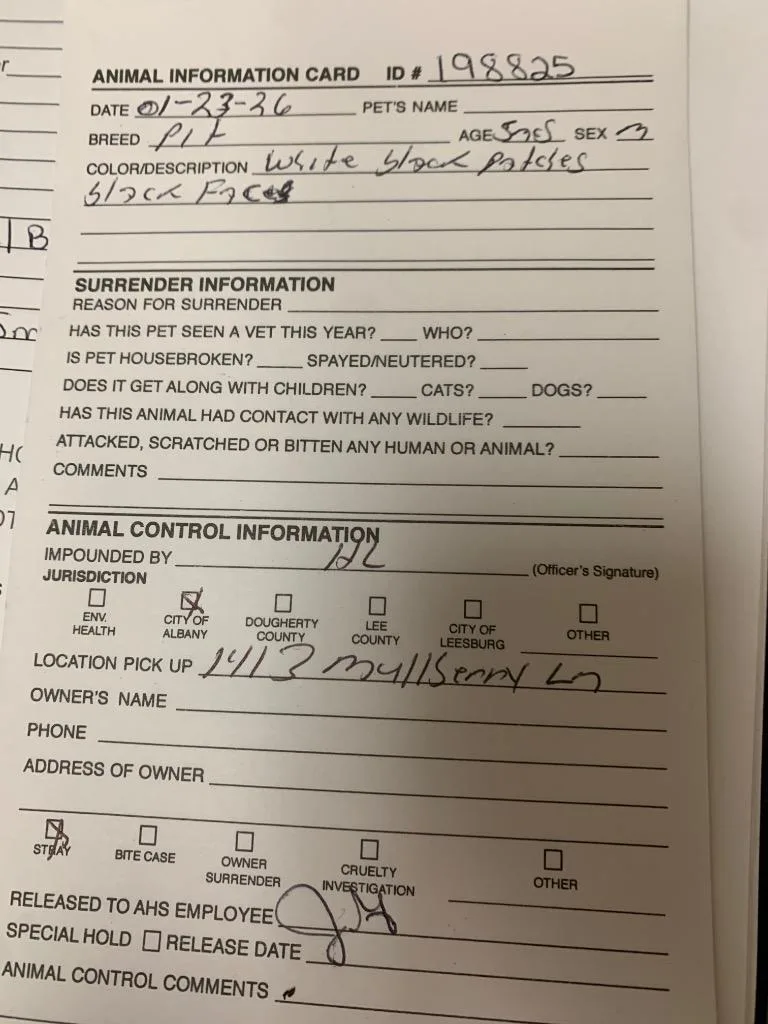 ANIMAL INFORMATION CARD ID # 198825
DATE 01-23-26 PET'S NAME
BREED Pit AGE SEX M
COLOR/DESCRIPTION White black patches
black Face
SURRENDER INFORMATION
REASON FOR SURRENDER
HAS THIS PET SEEN A VET THIS YEAR? WHO?
IS PET HOUSEBROKEN? SPAYED/NEUTERED?
DOES IT GET ALONG WITH CHILDREN? CATS? DOGS?
HAS THIS ANIMAL HAD CONTACT WITH ANY WILDLIFE?
ATTACKED, SCRATCHED OR BITTEN ANY HUMAN OR ANIMAL?
COMMENTS
ANIMAL CONTROL INFORMATION
IMPOUNDED BY (Officer's Signature)
JURISDICTION
ENV. HEALTH CITY OF ALBANY DOUGHERTY COUNTY LEE COUNTY CITY OF LEESBURG OTHER
LOCATION PICK UP 1413 Mullberry Ln
OWNER'S NAME
PHONE
ADDRESS OF OWNER
STRAY BITE CASE OWNER SURRENDER CRUELTY INVESTIGATION OTHER
RELEASED TO AHS EMPLOYEE
SPECIAL HOLD RELEASE DATE
ANIMAL CONTROL COMMENTS